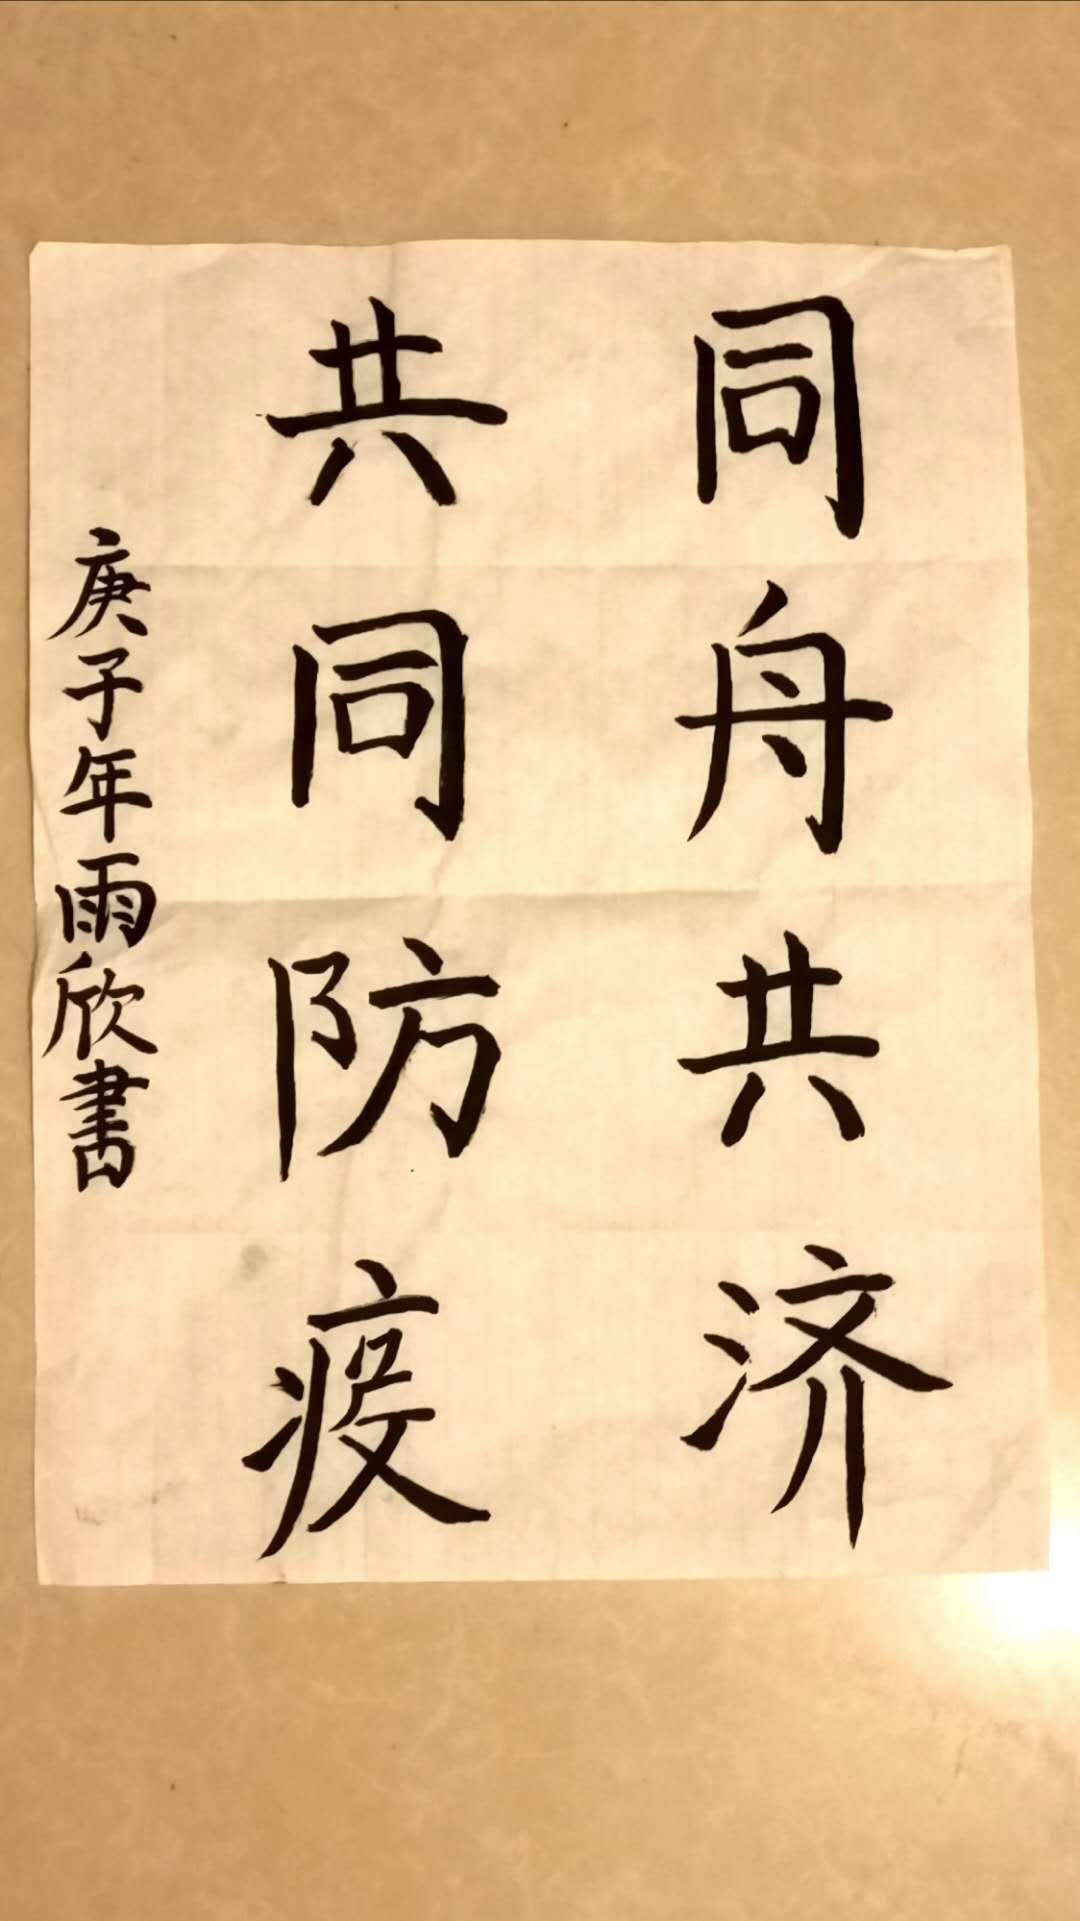 同舟共济
共同防疫
庚子年雨欣書